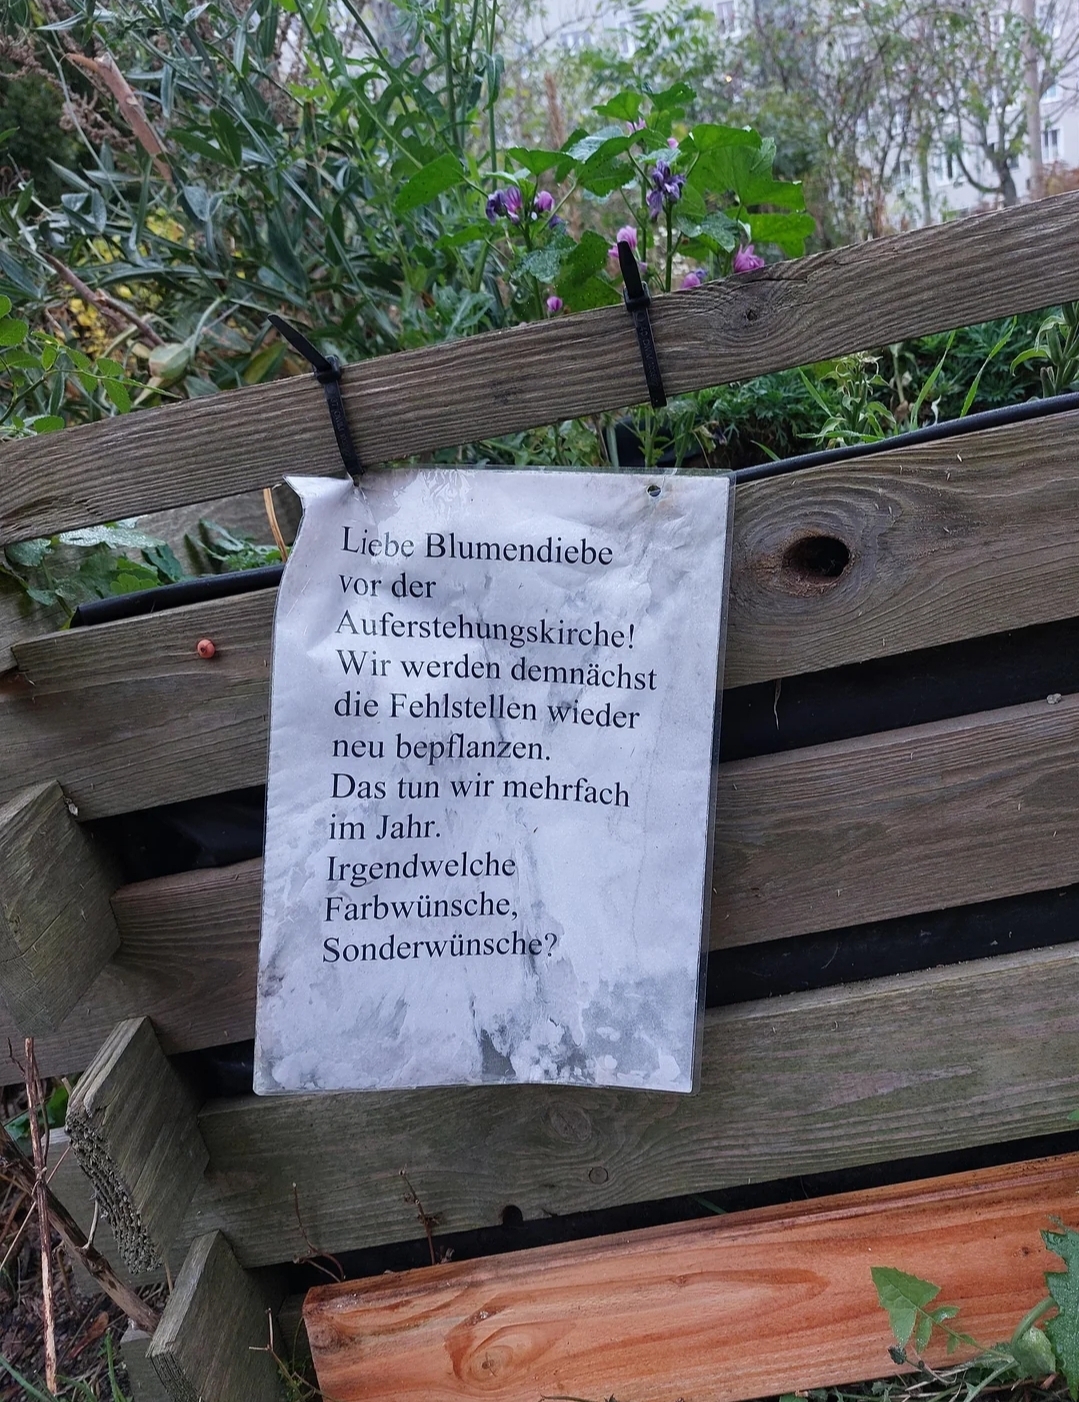 Liebe Blumendiebe
vor der
Auferstehungskirche!
Wir werden demnächst
die Fehlstellen wieder
neu bepflanzen.
Das tun wir mehrfach
im Jahr.
Irgendwelche
Farbwünsche,
Sonderwünsche?